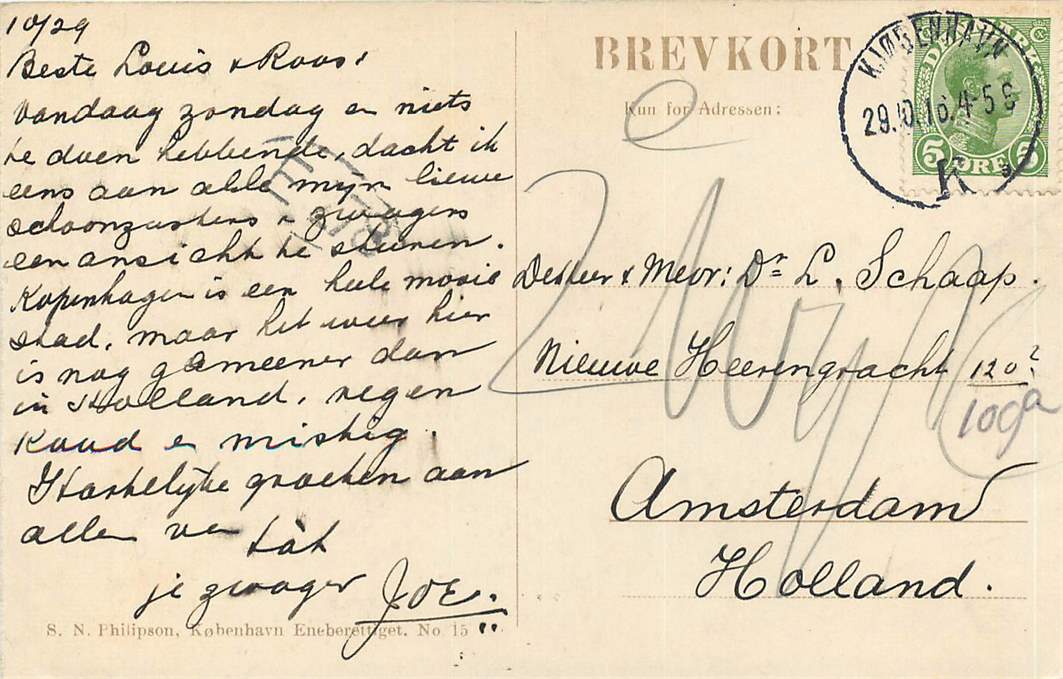 10/29
Beste Louis & Roos!
Vandaag zondag en niets
te doen hebbende, dacht ik
eens aan alle mijn lieve
schoonzusters & zwagers
een ansicht te sturen.
Kopenhagen is een hele mooie
stad, maar het weer hier
is nog gemeener dan
in Holland, regen
koud en mistig.
Hartelijke groeten aan
allen van
Tàt
je zwager JOE.
S. N. Philipson, København Eneberettiget. No 15
BREVKORT
Kun for Adressen:
KJØBENHAVN
29.10.16. 4-5 E
K
DANMARK
5 ØRE 5
E 178
De Heer & Mevr: Dr L. Schaap.
Nieuwe Heerengracht 120?
109a
Amsterdam
Holland.